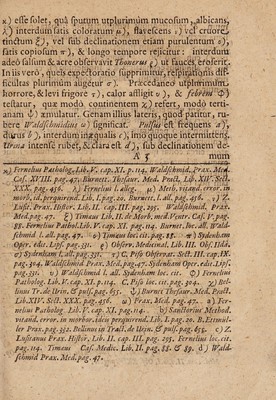 κ) esse solet, quâ sputum utplurimùm mucosum, albicans,
λ) interdum satis coloratum μ), flavescens ν) vel cruore
tinctum ξ), vel sub declinationem etiam purulentum ο),
satis copiosum π), & longo tempore rejicitur: interdum
adeò salsum & acre observavit Thonerus ρ) ut fauces eroserit.
In iis verò, queîs expectoratio supprimitur, respirationis dif-
ficultas plurimùm augetur σ). Præcedaneo utplurimùm
horrore, & levi frigore τ), calor affligit υ), & febrem Φ)
testatur, quæ modò continentem χ) refert, modò terti-
anam ψ) æmulatur. Genam illius lateris, quod patitur, ru-
bere Waldschmidius ω) significat. Pulsus est frequens a),
durus b), interdum inæqualis c), imò quoque intermittens.
Urina intensè rubet, & clara est d), sub declinationem de-
A 3 mum
κ) Fernelius Patholog. Lib. V. cap. XI. p. 114. Waldschmid. Prax. Med.
Cas. XVIII. pag. 47. Burnett. Thesaur. Med. Pract. Lib. XIV. Sect.
XXX. pag. 456. λ) Fernelius l. alleg. μ) Meth. vitand. error. in
morb. id. perquirend. Lib. I. pag. 20. Burnett. l. all. pag. 456. ν) Z.
Lusit. Prax. Histor. Lib. II. cap. III. pag. 295. Waldschmid. Prax.
Med. pag. 47. ξ) Timæus Lib. II. de Morb. med. Ventr. Cas. V. pag.
88. Fernelius Pathol. Lib. V. cap. XI. pag. 114. Burnett. loc. all. Wald-
schmid. l. all. pag. 47. ο) Timæus loc. cit. pag. 88. π) Sydenham
Oper. edit. Lips. pag. 331. ρ) Observ. Medicinal. Lib. III. Obs. IIdâ.
σ) Sydenham l. all. pag. 331. τ) C. Piso Observat. Sect. III. cap. IX.
pag. 304. Waldschmid Prax. Med. pag. 47. Sydenham Oper. edit. Lips.
pag. 331. υ) Waldschmid l. all. Sydenham loc. cit. Φ) Fernelius
Patholog. Lib. V. cap. XI. p. 114. C. Piso loc. cit. pag. 304. χ) Bel-
linus Tr. de Urin. & puls. pag. 655. ψ) Burnet Thesaur. Med. Pract.
Lib. XIV. Sect. XXX. pag. 456. ω) Prax. Med. pag. 47. a) Fer-
nelius Patholog. Lib. V. cap. XI. pag. 114. b) Sanctorius Method.
vitand. error. in morbor. ideis perquirend. Lib. I. pag. 20. B. Etmül-
ler Prax. pag. 332. Bellinus in Tract. de Urin. & puls. pag. 655. c) Z.
Lusitanus Prax. Histor. Lib. II. cap. III. pag. 295. Fernelius loc. cit.
pag. 114. Timæus Cas. Medic. Lib. II. pag. 88. & 89. d) Wald-
schmid Prax. Med. pag. 47.